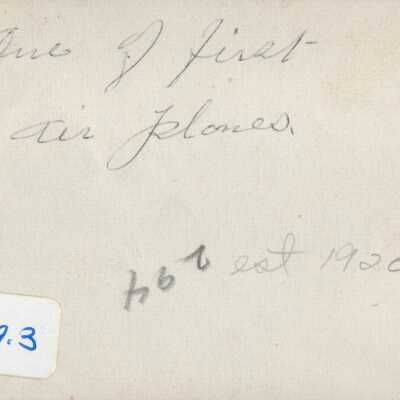 One of first
Air Planes.
est 1920
.3